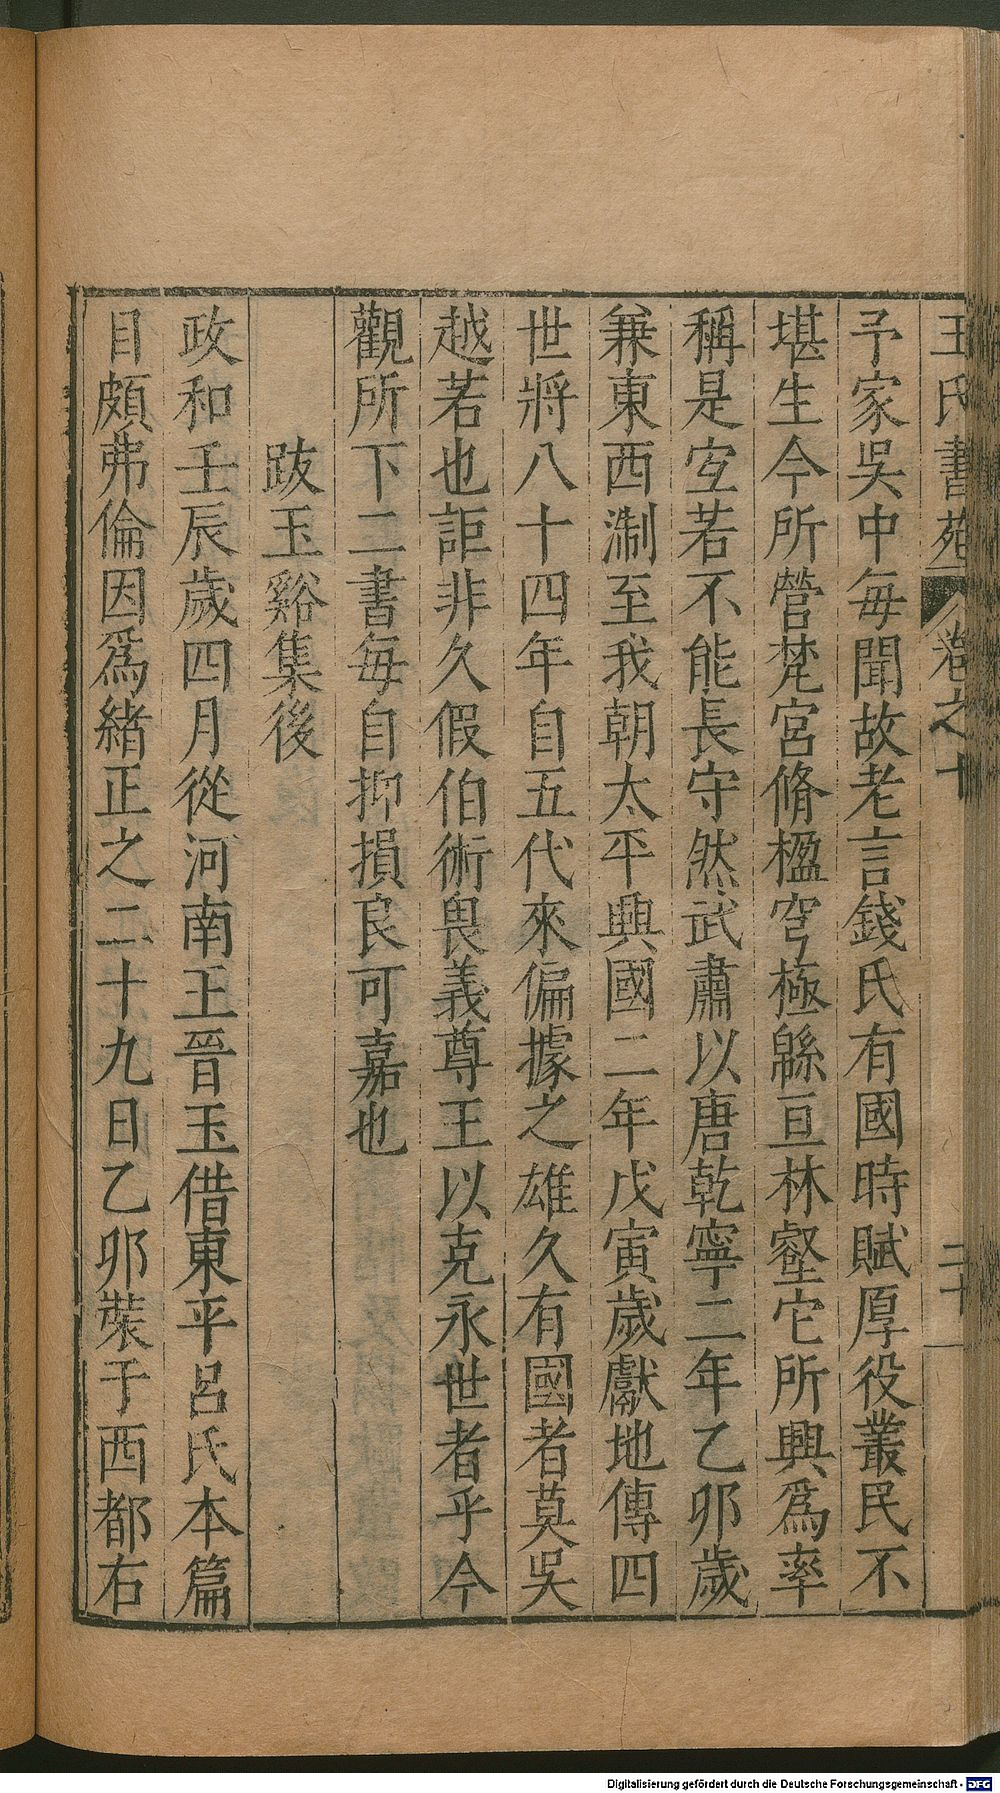 王氏書苑 卷之十 二十
予家吳中每聞故老言錢氏有國時賦厚役叢民不
堪生今所營梵宮脩楹穹極緜亘林壑它所興爲率
稱是宐若不能長守然武肅以唐乾寧二年乙卯歲
兼東西淛至我朝太平興國二年戊寅歲獻地傳四
世將八十四年自五代來偏據之雄久有國者莫吳
越若也詎非久假伯術畏義尊王以克永世者乎今
觀所下二書每自抑損良可嘉也
跋玉谿集後
政和壬辰歲四月從河南王晉玉借東平呂氏本篇
目頗弗倫因爲緒正之二十九日乙卯裝于西都右
Digitalisierung gefördert durch die Deutsche Forschungsgemeinschaft - DFG